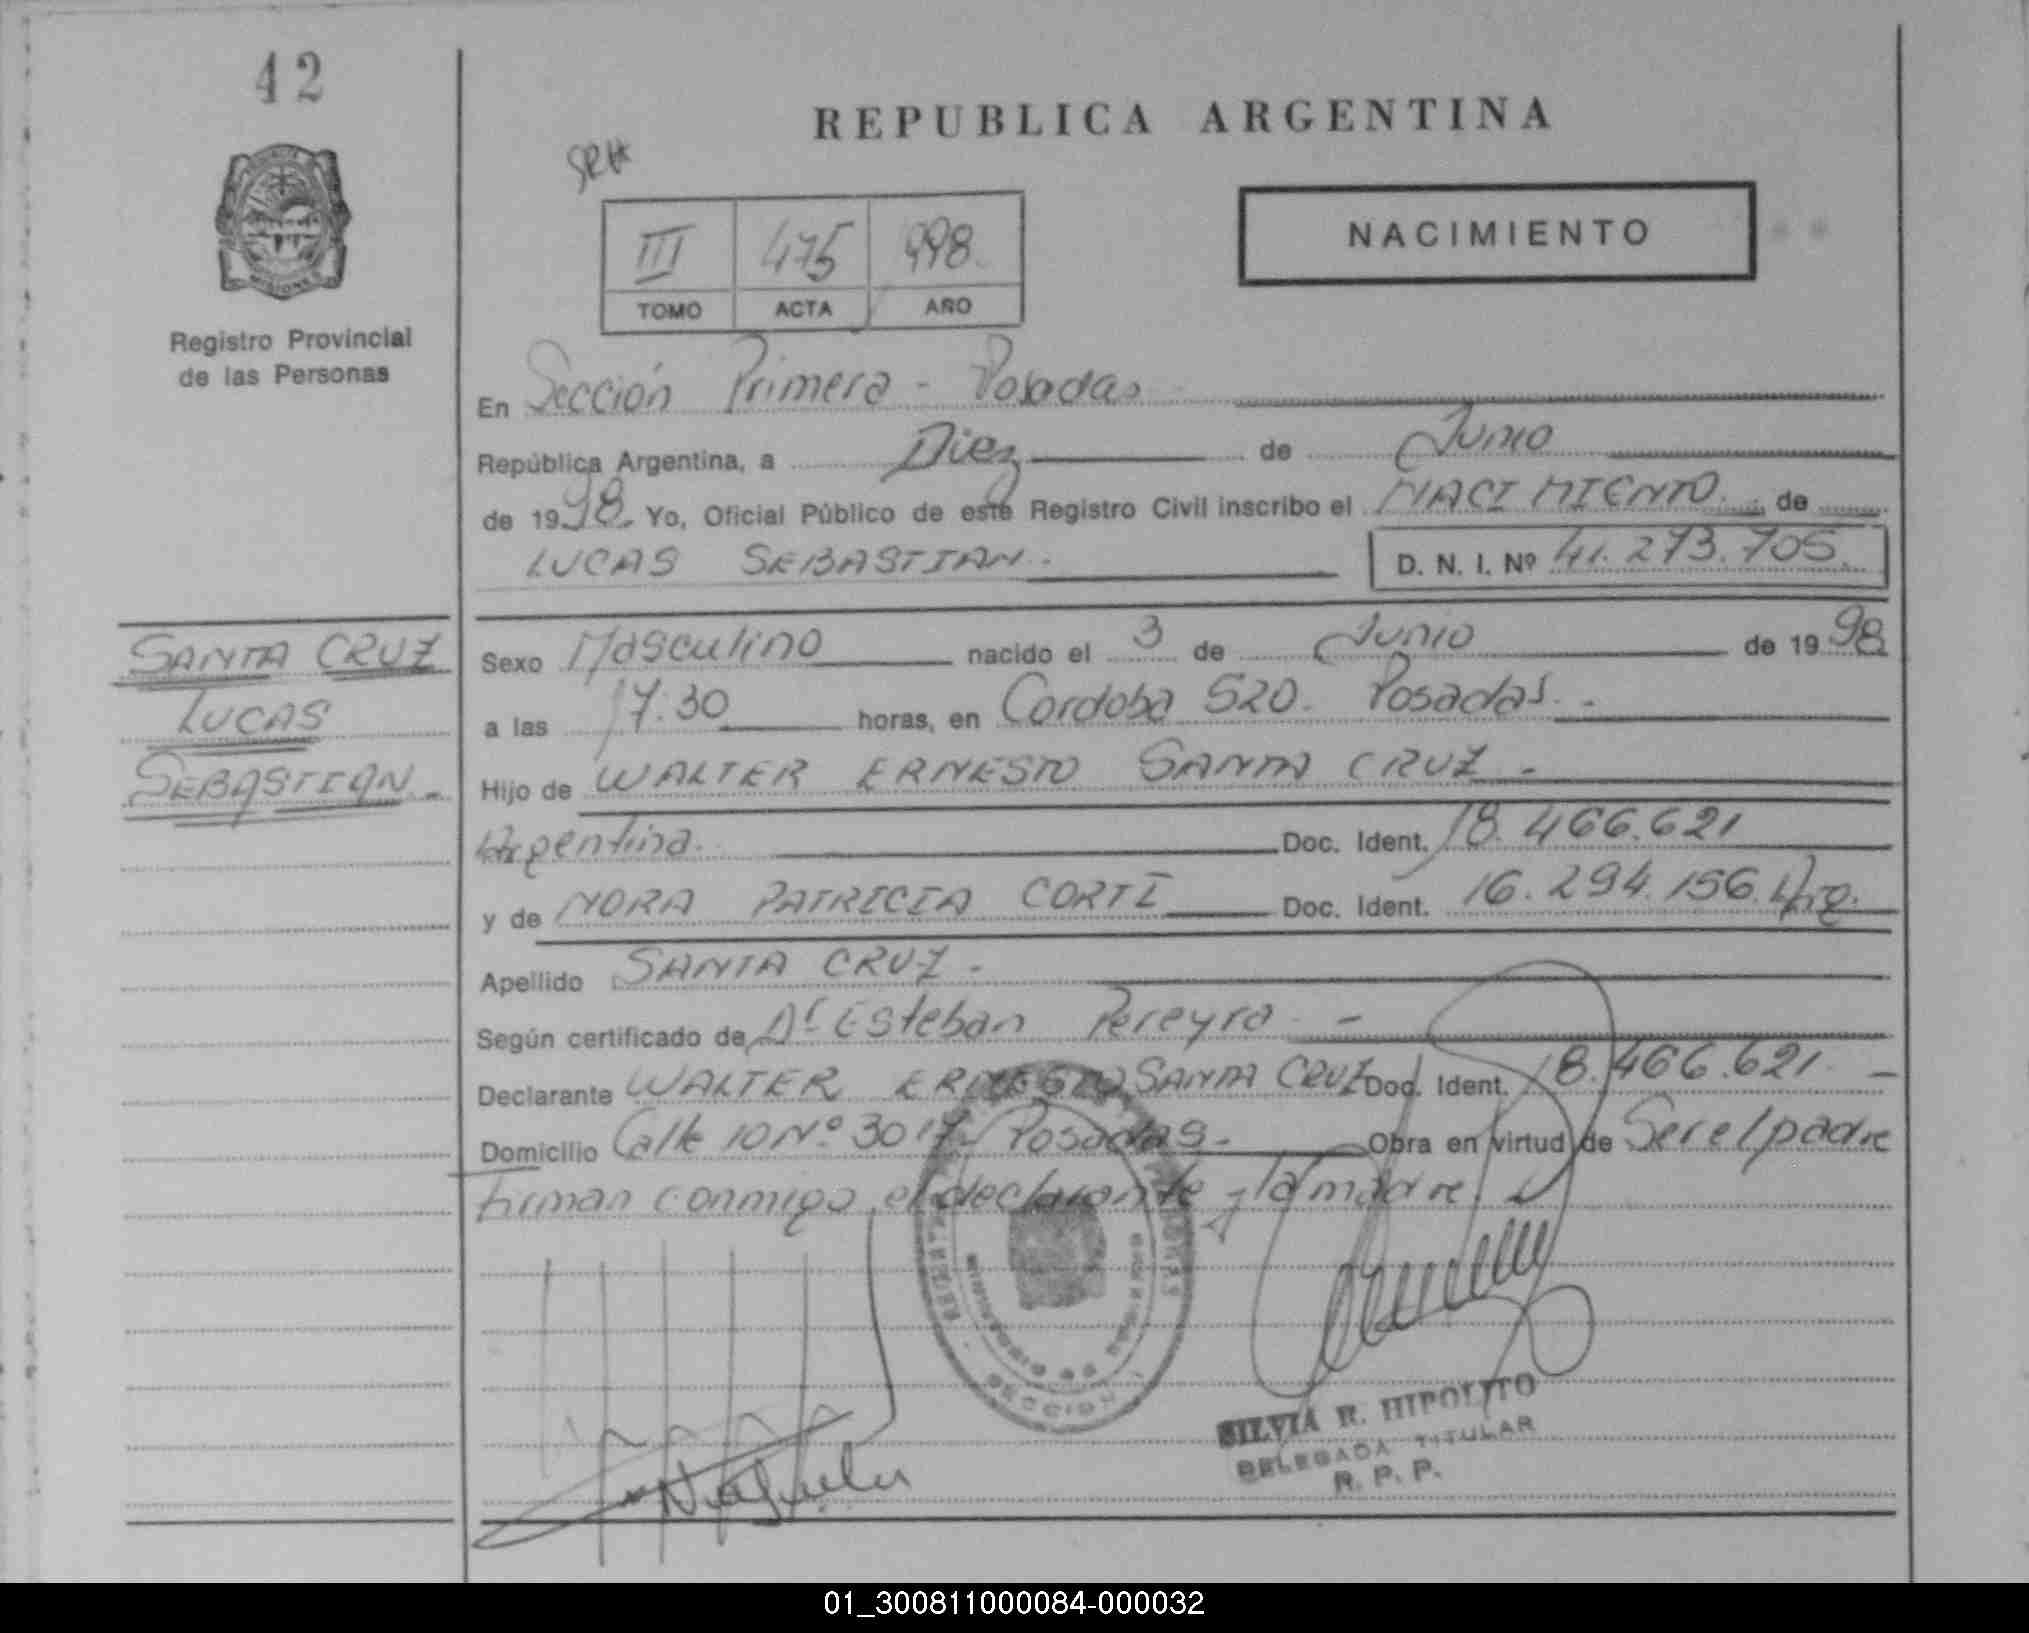 42
REPUBLICA ARGENTINA
SRH
NACIMIENTO
III 475 998
TOMO ACTA AÑO
MISIONES
Registro Provincial
de las Personas
En Sección Primera - Posadas
República Argentina, a Diez de Junio
de 1998. Yo, Oficial Público de este Registro Civil inscribo el NACIMIENTO de
LUCAS SEBASTIAN. D. N. I. Nº 41.273.705.
SANTA CRUZ
LUCAS
SEBASTIAN.-
Sexo Masculino nacido el 3 de Junio de 1998
a las 17:30 horas, en Cordoba 520. Posadas.-
Hijo de WALTER ERNESTO SANTA CRUZ -
Argentina. Doc. Ident. 18.466.621
y de NORA PATRICIA CORTI Doc. Ident. 16.294.156. Arg.
Apellido SANTA CRUZ -
Según certificado de Dr Esteban Pereyra. -
Declarante WALTER ERNESTO SANTA CRUZ Doc. Ident. 18.466.621. -
Domicilio Calle 10 Nº 3017 - Posadas.- Obra en virtud de Ser el padre
firman conmigo el declarante y la madre.
SECCION 1
SILVIA R. HIPOLITO
DELEGADA TITULAR
R. P. P.
01_300811000084-000032